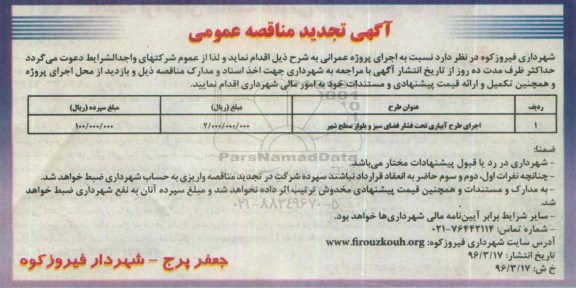 آگهی تجدید مناقصه عمومی
شهرداری فیروزکوه در نظر دارد نسبت به اجرای پروژه عمرانی به شرح ذیل اقدام نماید و لذا از عموم شرکتهای واجدالشرایط دعوت می‌گردد
حداکثر ظرف مدت ده روز از تاریخ انتشار آگهی با مراجعه به شهرداری جهت اخذ اسناد و مدارک مناقصه ذیل و بازدید از محل اجرای پروژه
و همچنین تکمیل و ارائه قیمت پیشنهادی و مستندات خود به امور مالی شهرداری اقدام نمایید.
ردیف عنوان طرح مبلغ (ریال) مبلغ سپرده (ریال)
۱ اجرای طرح آبیاری تحت فشار فضای سبز و بلوار سطح شهر ۲/۰۰۰/۰۰۰/۰۰۰ ۱۰۰/۰۰۰/۰۰۰
ضمنا:
- شهرداری در رد یا قبول پیشنهادات مختار می‌باشد.
- چنانچه نفرات اول، دوم و سوم حاضر به انعقاد قرارداد نباشند سپرده شرکت در تجدید مناقصه واریزی به حساب شهرداری ضبط خواهد شد.
- به مدارک و مستندات و همچنین قیمت پیشنهادی مخدوش ترتیب اثر داده نخواهد شد و مبلغ سپرده آنان به نفع شهرداری ضبط خواهد
شد.
- سایر شرایط برابر آیین‌نامه مالی شهرداری‌ها خواهد بود.
- شماره تماس: ۷۶۴۴۲۱۱۴-۰۲۱
آدرس سایت شهرداری فیروزکوه: www.firouzkouh.org
تاریخ انتشار: ۹۶/۳/۱۷
خ ش: ۹۶/۳/۱۷
جعفر پرچ - شهردار فیروزکوه
ParsNamadData
۰۲۱-۸۸۳۴۹۶۷۰-۵